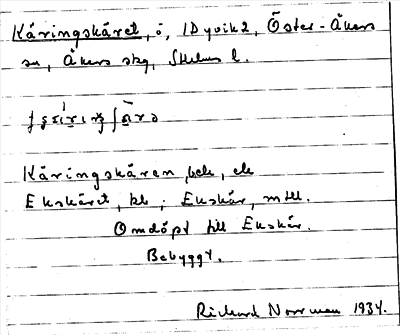 Käringskäret, ö, 1 Dyvik 2, Öster-Åkers
sn, Åkers skg, Sthlms l.
Käringskären, bek, ek
Ekskäret, kb; Ekskär, mtll.
Omdöpt till Ekskär.
Bebyggt.
Rickard Norrman 1934.